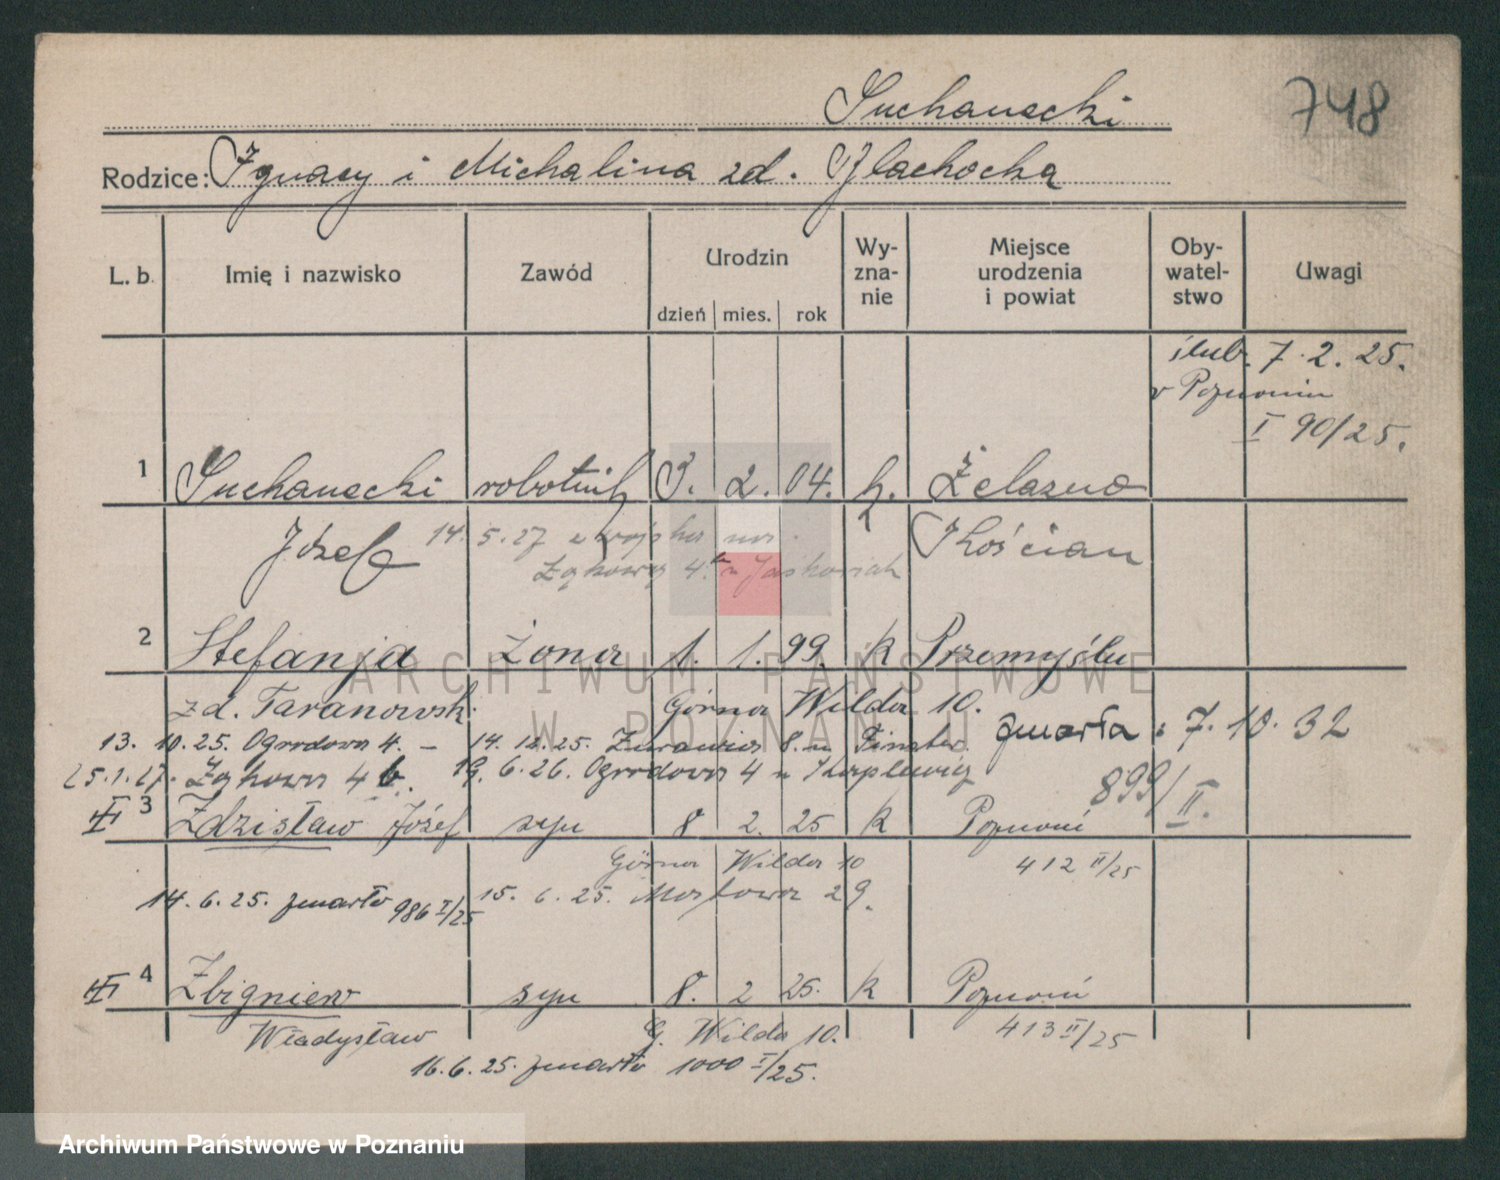 748
Suchanecki
Rodzice: Ignacy i Michalina zd. Błachocka
L. b. Imię i nazwisko Zawód Urodzin dzień mies. rok Wy-zna-nie Miejsce urodzenia i powiat Oby-watel-stwo Uwagi
ślub. 7.2.25.
w Poznaniu
I 90/25.
1 Suchanecki robotnik 3. 2. 04. k. Żelazno
Józef Kościan
14.5.27 z wojska
Łąkowa 4
2 Stefanja żona 1. 1. 99. k Przemyślu
zd. Taranowsk. Górna Wilda 10.
zmarła: 7.10.32
13.10.25. Ogrodowa 4. – 14.12.25. Żurawia 8. u
25.1.27. Łąkowa 4b. 19.6.26. Ogrodowa 4 u
899/II.
3 Zdzisław Józef syn 8 2. 25 k Poznań
Górna Wilda 10 412 II/25
14.6.25. zmarło 986 I/25 15.6.25. Mostowa 29.
4 Zbigniew syn 8. 2 25. k Poznań
Władysław G. Wilda 10. 413 II/25
16.6.25. zmarło 1000 I/25.
ARCHIWUM PAŃSTWOWE
W POZNANIU
Archiwum Państwowe w Poznaniu